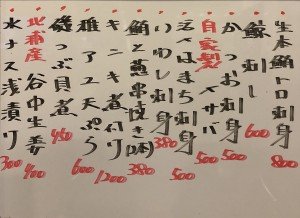 生本鮪トロ刺身 800
鯨刺し 600
かつお刺身 500
自家製〆サバ 500
えぼだい刺身 500
いわし刺身 380
鮪と葱串焼き(2本) 380
キンキ煮付け 1200
雄アユ天ぷら 600
磯つぶ貝煮 450
北浦産 谷中生姜 400
水ナス浅漬け 300